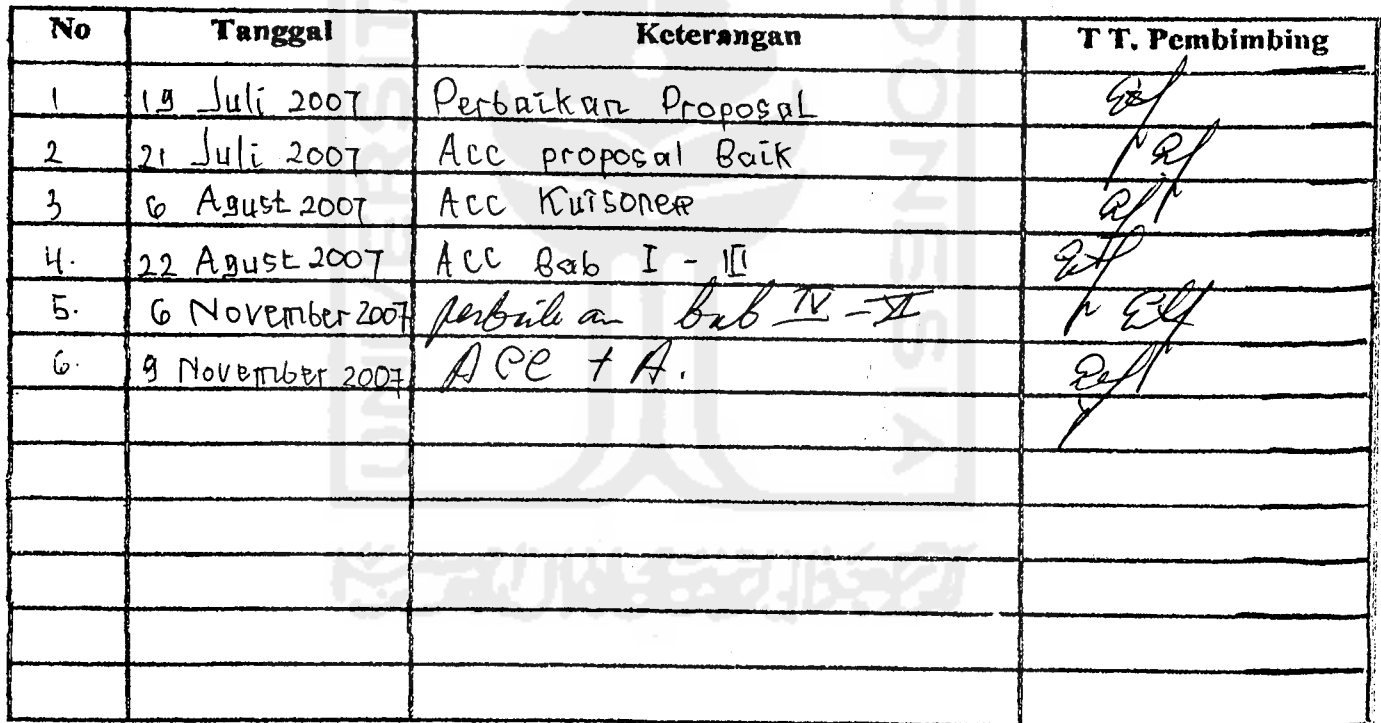 No Tanggal Keterangan T T. Pembimbing
1 19 Juli 2007 Perbaikan Proposal
2 21 Juli 2007 Acc proposal Baik
3 6 Agust 2007 Acc Kuisoner
4. 22 Agust 2007 Acc Bab I - III
5. 6 November 2007 perbaikan bab IV - VI
6. 9 November 2007 ACC TA.
UNIVERSITA
DONESIA